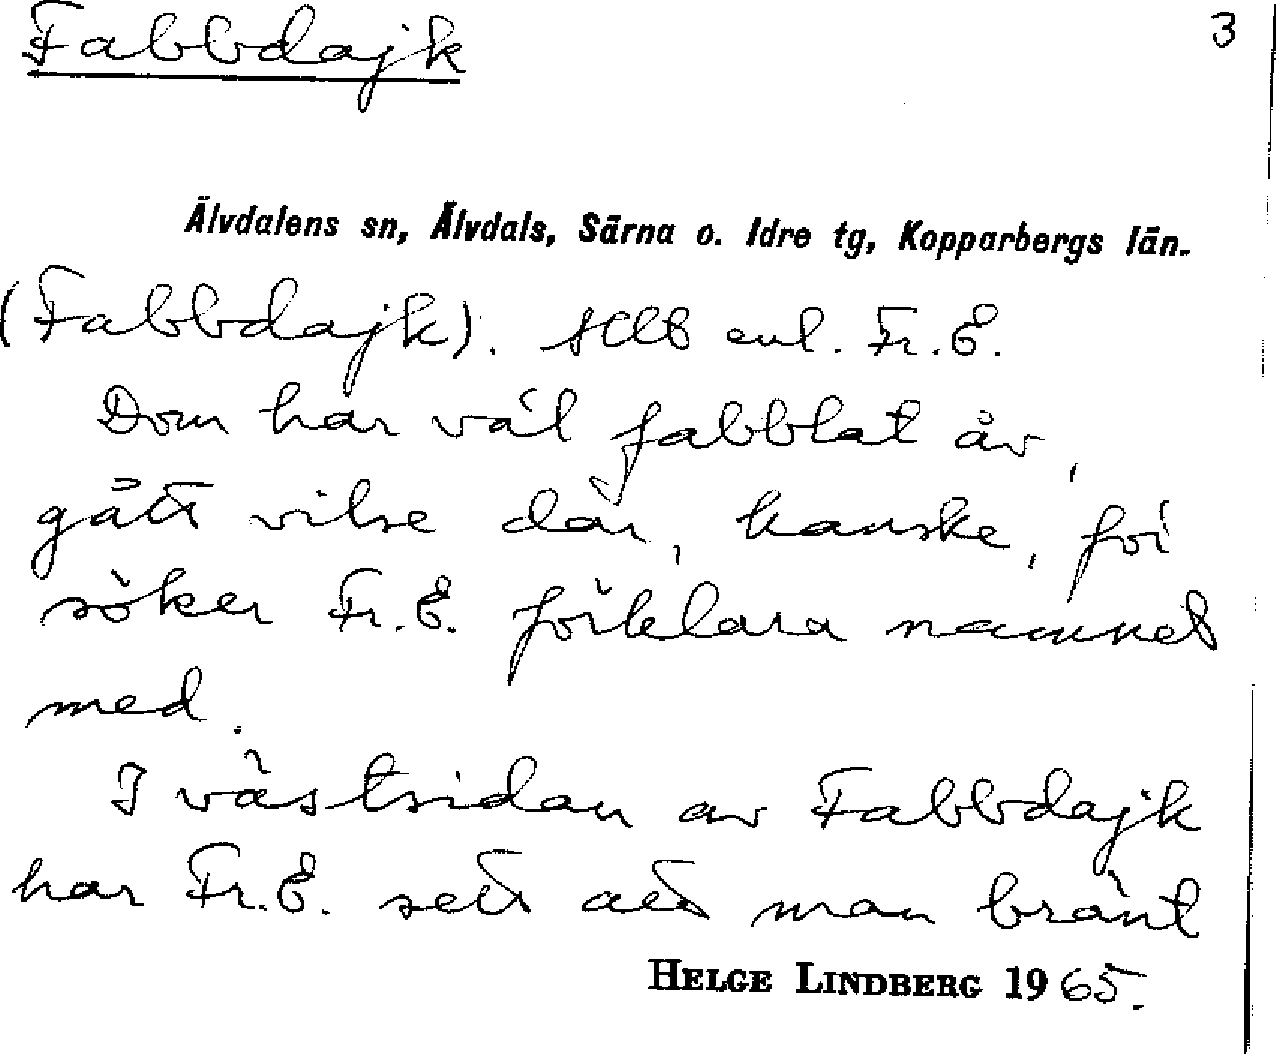 Fabbdajk
3
Älvdalens sn, Älvdals, Särna o. Idre tg, Kopparbergs län.
(Fabbdajk). enl. Fr. E.
Dom har väl fabblat åv,
gått vilse där, kanske, för
söker Fr. E. förklara namnet
med.
I västsidan av Fabbdajk
har Fr. E. sett att man bränt
HELGE LINDBERG 1965.